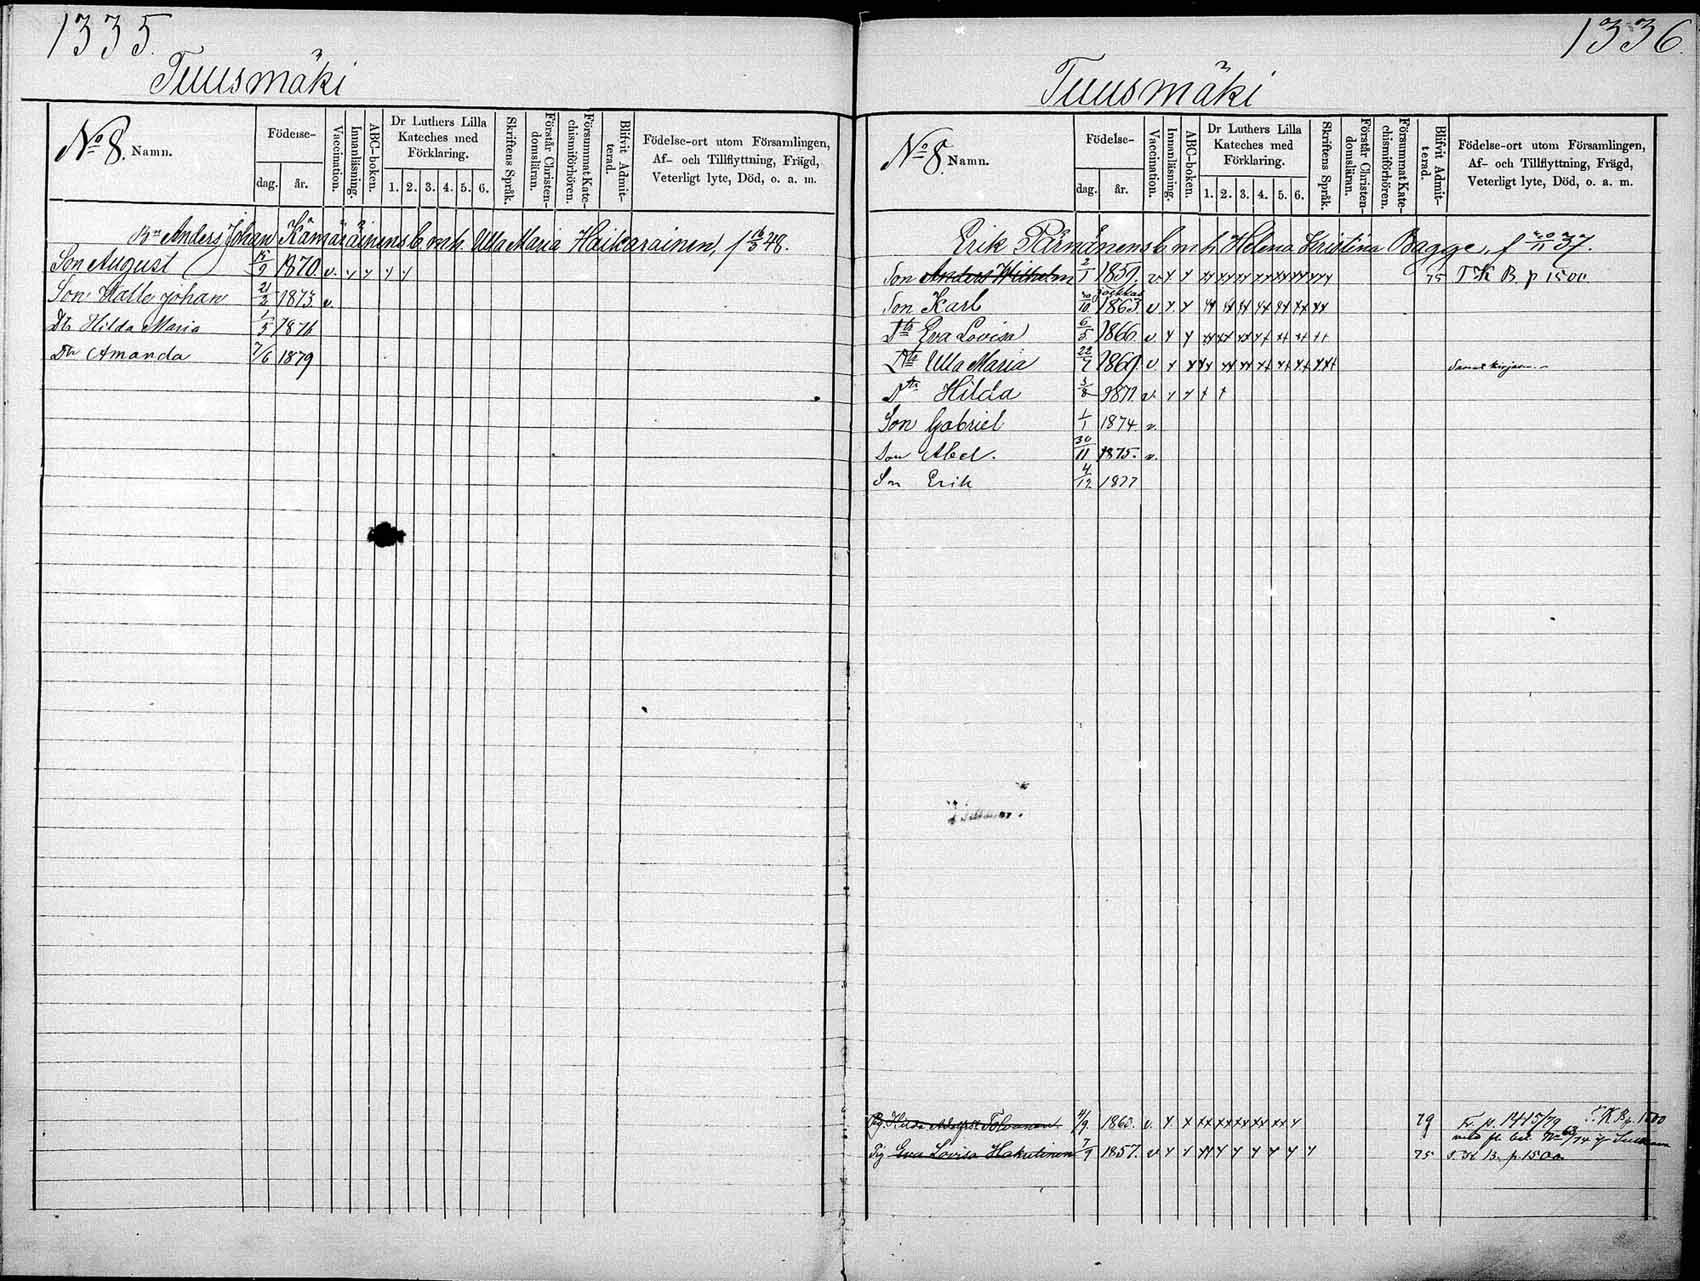 1335.
Tuusmäki
No 8. Namn.
Födelse-
dag. år.
Vaccination.
Innanläsning.
ABC-boken.
Dr Luthers Lilla Kateches med Förklaring.
1. 2. 3. 4. 5. 6.
Skriftens Språk.
Förstår Christendomsläran.
Försummat Katechismiförhören.
Blifvit Admitterad.
Födelse-ort utom Församlingen,
Af- och Tillflyttning, Frägd,
Veterligt lyte, Död, o. a. m.
Anders Johan Kämäräinens b. m. h. Ulla Maria Haikarainen, f 48.
Son August 1870. v.
Son Kalle Johan 21/2 1873 v.
Dtr Hilda Maria 1/5 1876
Dtr Amanda 7/6 1879
1336.
Tuusmäki
No 8. Namn.
Födelse-
dag. år.
Vaccination.
Innanläsning.
ABC-boken.
Dr Luthers Lilla Kateches med Förklaring.
1. 2. 3. 4. 5. 6.
Skriftens Språk.
Förstår Christendomsläran.
Försummat Katechismiförhören.
Blifvit Admitterad.
Födelse-ort utom Församlingen,
Af- och Tillflyttning, Frägd,
Veterligt lyte, Död, o. a. m.
Erik Pärnänens b m h Helena Kristina Bagge, f 20/11 37.
Son Anders Wilhelm 2/1 v 75 T K B. p 1500.
Son Karl 1863 v
Dtr Eva Lovisa 6/5 1866. v
Dtr Ulla Maria v
Dtr Hilda 5/8 v.
Son Gabriel 1/1 1874 v.
Son Abel. 30/11 1875. v.
Son Erik 4/12 1877
1860. v. 79 Fr. p. 1415/79 T. K B p. 1500
Pig Eva Lovisa Hakulinen 7/9 1857. v 75 T. K B. p. 1500.